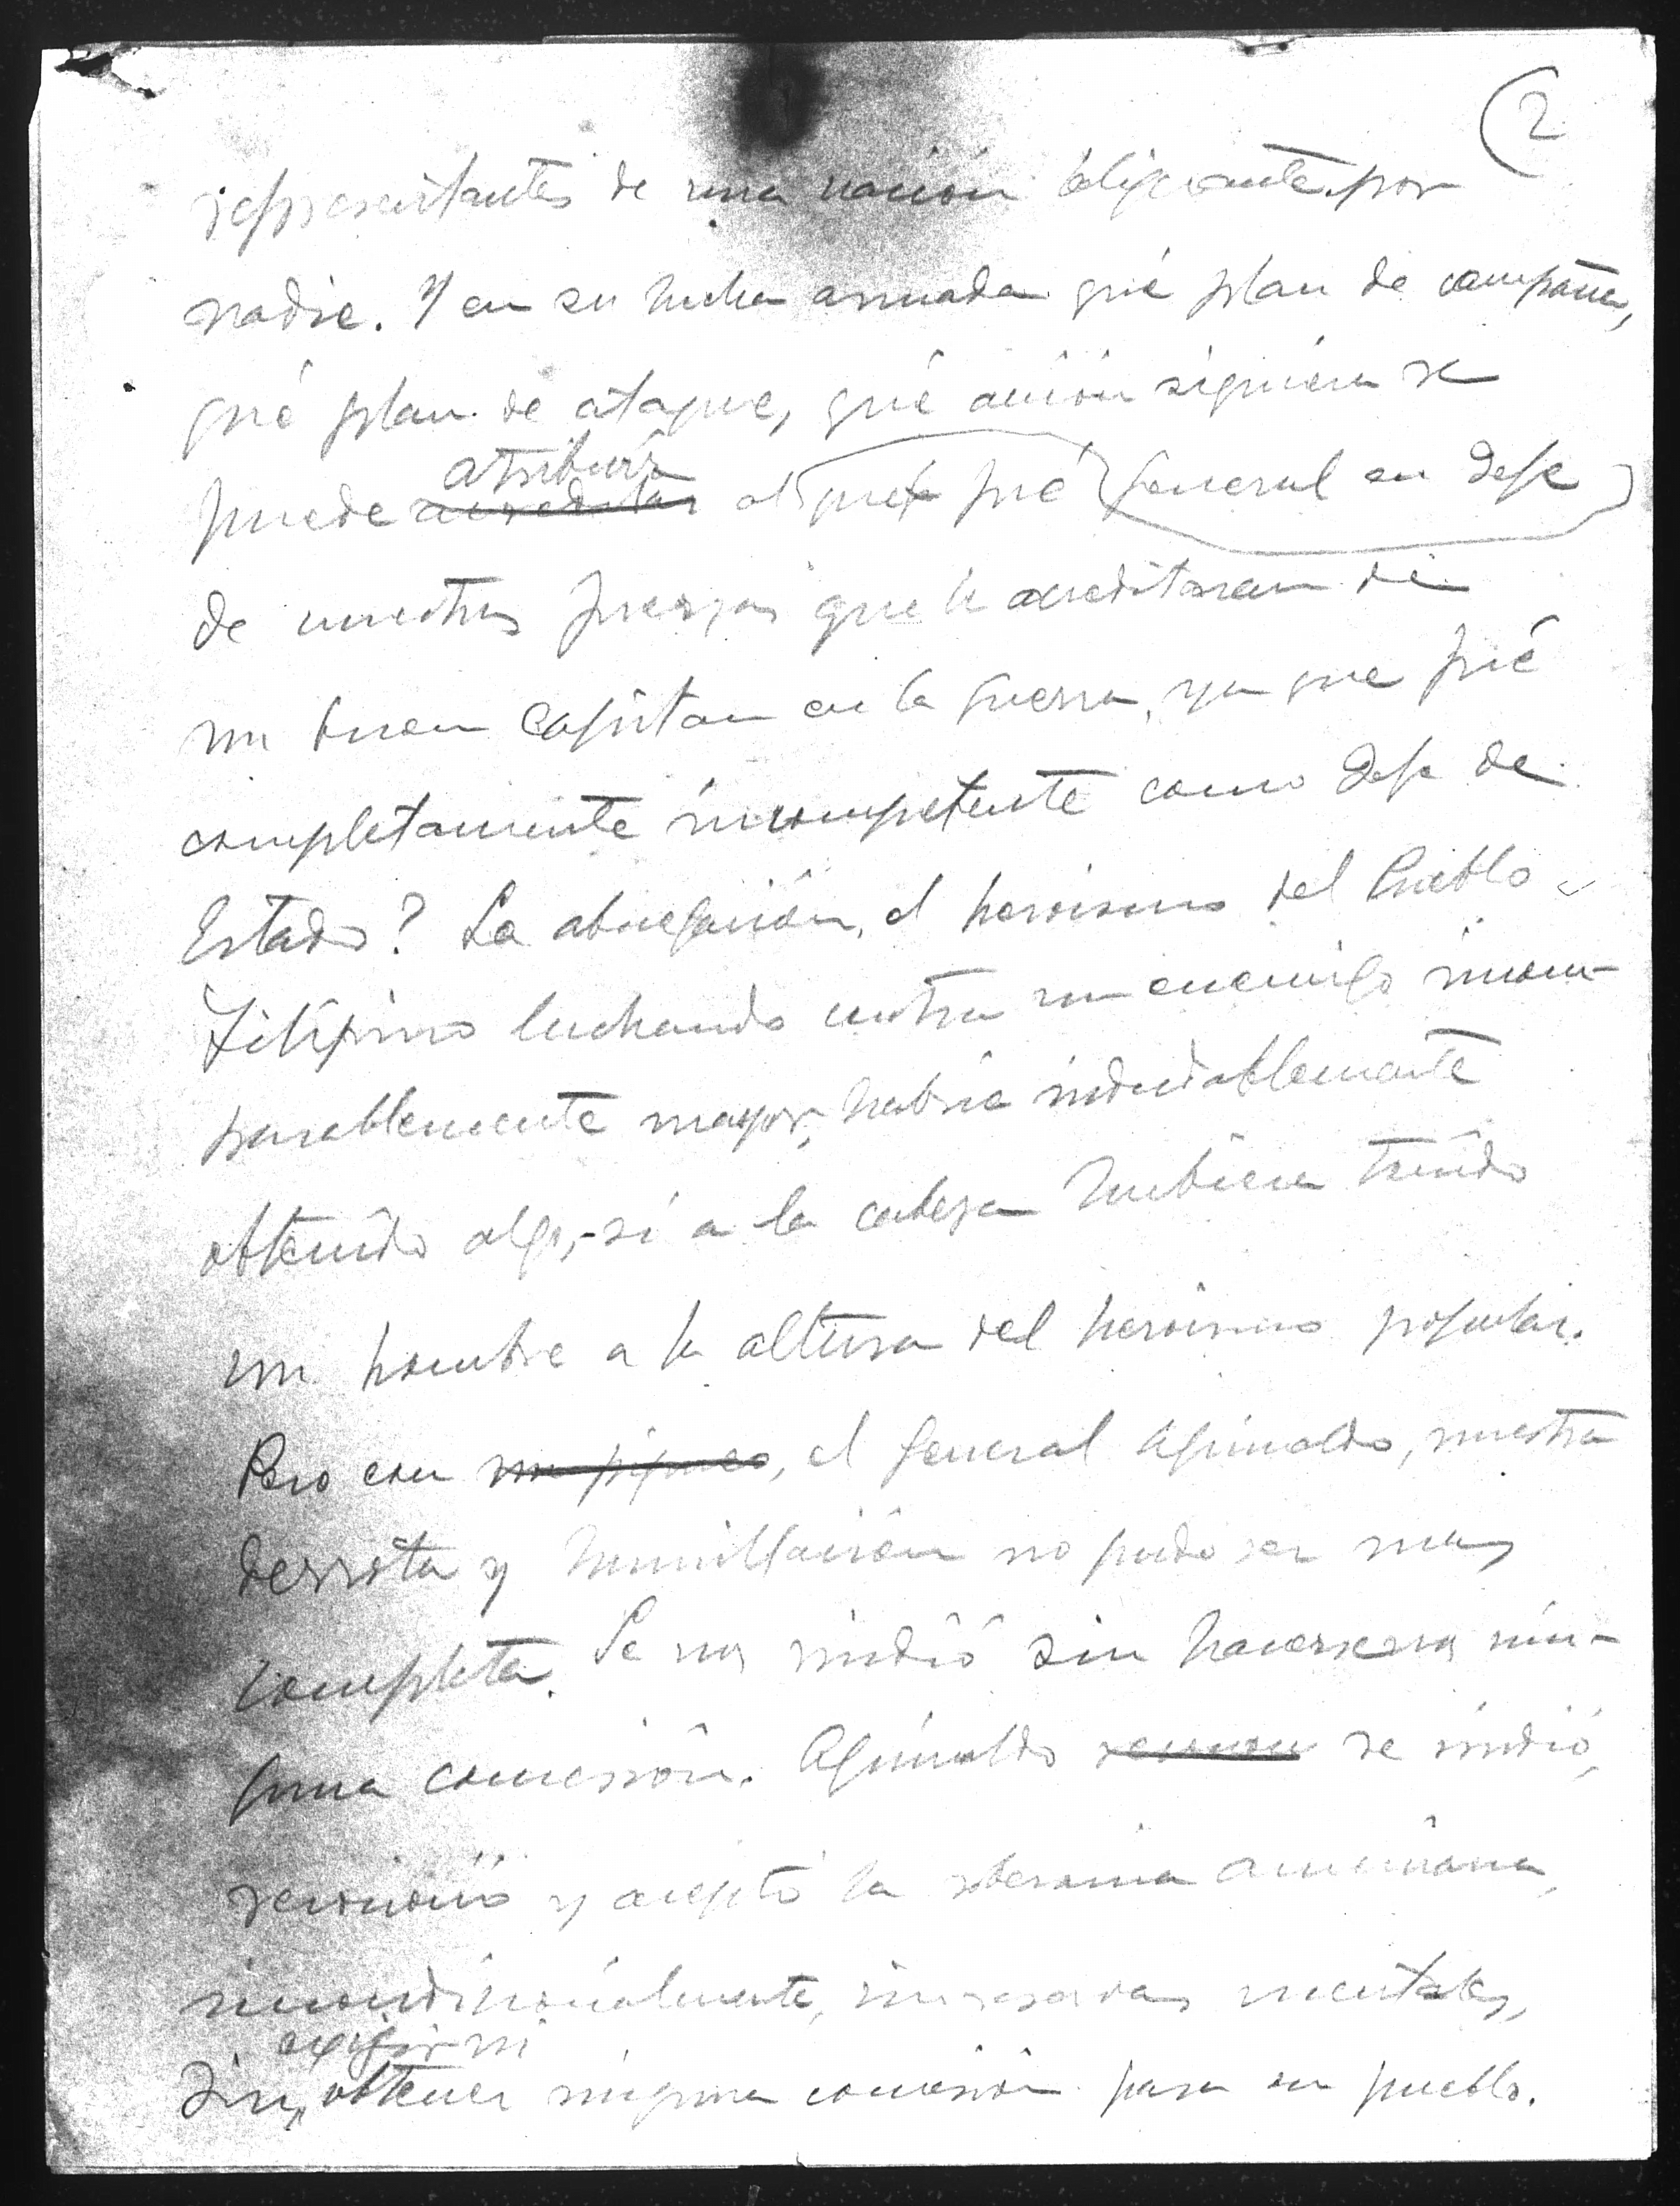 2
representantes de una nación beligerante por
nadie. Y en su lucha armada qué plan de campaña,
qué plan de ataque, qué acción siquiera se
atribuir
puede acreditar al que fué General en Jefe
de nuestras fuerzas que le acreditaran de
un buen capitan en la guerra, ya que fué
completamente incompetente como Jefe de
Estado? La abnegación, el heroismo del Pueblo
Filipino luchando contra un enemigo incom-
parablemente mayor, habria indudablemente
obtenido algo, si a la cabeza hubiera tenido
un hombre a la altura del heroismo popular.
Pero con un pigmeo, el general Aguinaldo, nuestra
derrota y humillación no pudo ser mas
completa. Se nos rindió sin hacersenos nin-
guna concesión. Aguinaldo se rindió,
reconoció y aceptó la soberania americana,
incondicionalmente, sin reservas mentales,
exigir ni
sin obtener ninguna concesión para su pueblo.